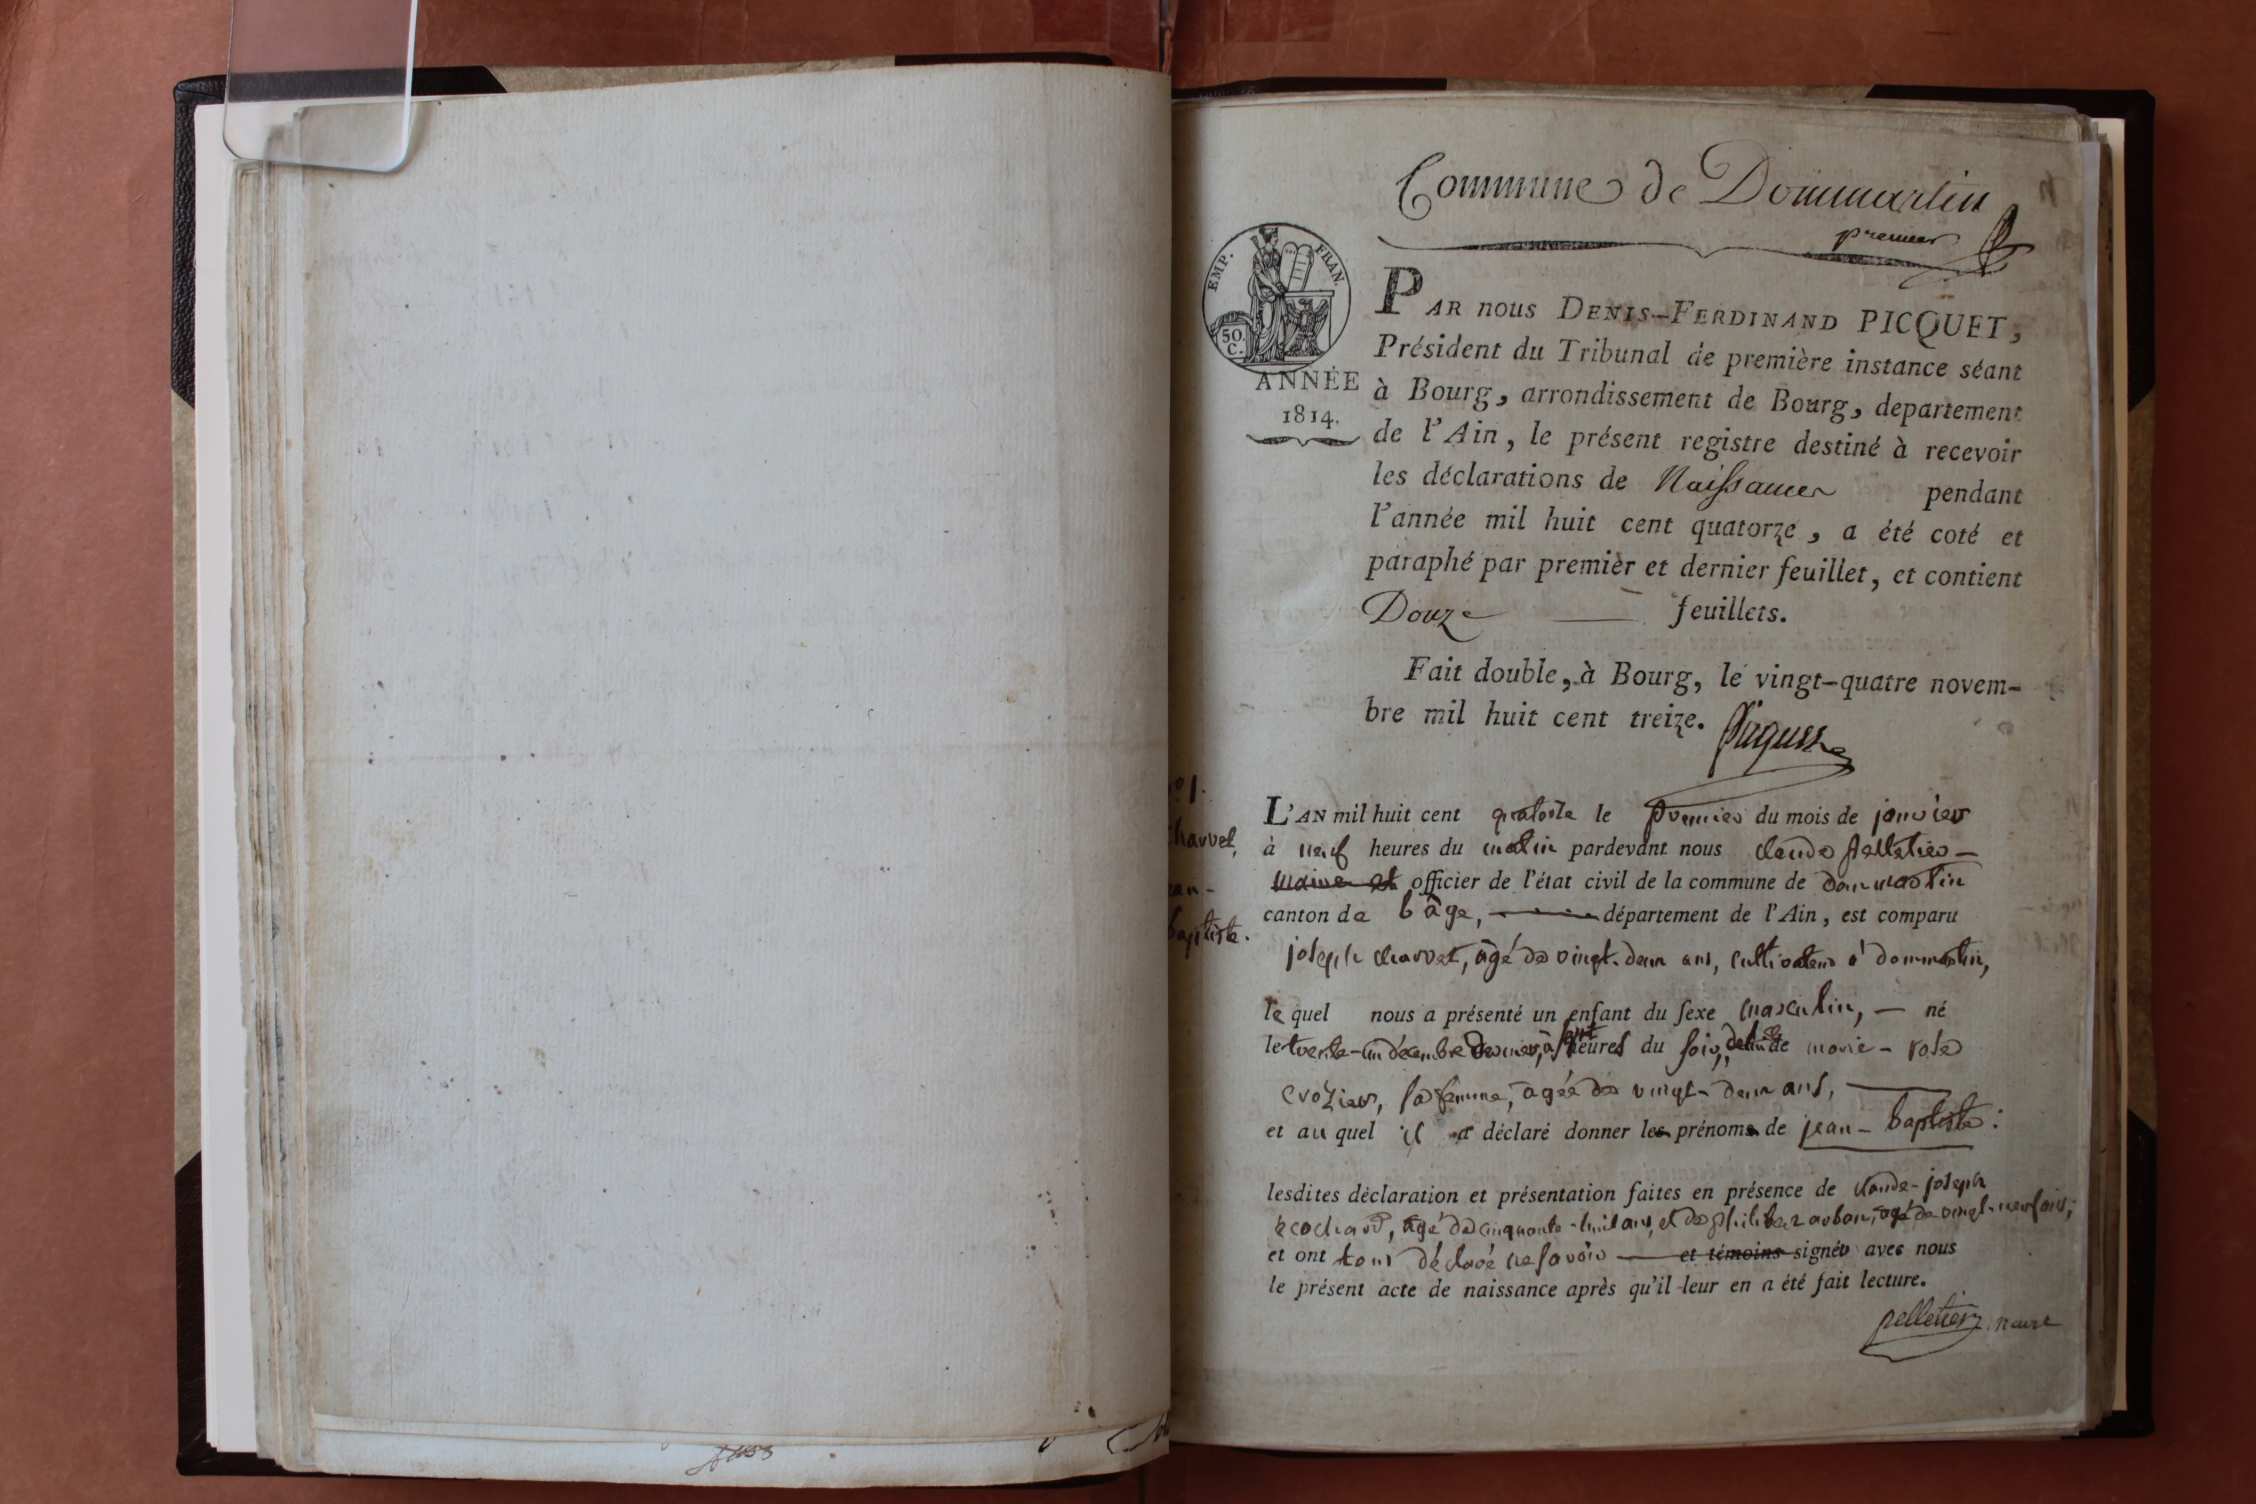 Commune de Dommartin
premier
EMP. FRAN.
50.
C.
ANNÉE
1814.
PAR nous DENIS-FERDINAND PICQUET,
Président du Tribunal de première instance séant
à Bourg, arrondissement de Bourg, departement
de l'Ain, le présent registre destiné à recevoir
les déclarations de Naissances pendant
l'année mil huit cent quatorze, a été coté et
paraphé par premier et dernier feuillet, et contient
Douze feuillets.
Fait double, à Bourg, le vingt-quatre novem-
bre mil huit cent treize.
Picquet
1.
charvet,
baptiste.
L'AN mil huit cent quatorze le premier du mois de janvier
à neuf heures du matin pardevant nous claude pelletier
maire et officier de l'état civil de la commune de dommartin
canton de bâge, département de l'Ain, est comparu
joseph charvet, âgé de vingt-deux ans, cultivateur à dommartin,
le quel nous a présenté un enfant du sexe masculin, né
le trente-un décembre dernier, à sept heures du soir, de lui & de marie-rose
crozier, sa femme, agée de vingt-deux ans,
et au quel il a déclaré donner les prénoms de jean-baptiste:
lesdites déclaration et présentation faites en présence de claude-joseph
écochard, âgé de cinquante-huit ans, et de philibert aubon, agé de vingt-neuf ans;
et ont tous déclaré ne savoir et témoins signér avec nous
le présent acte de naissance après qu'il leur en a été fait lecture.
pelletier maire